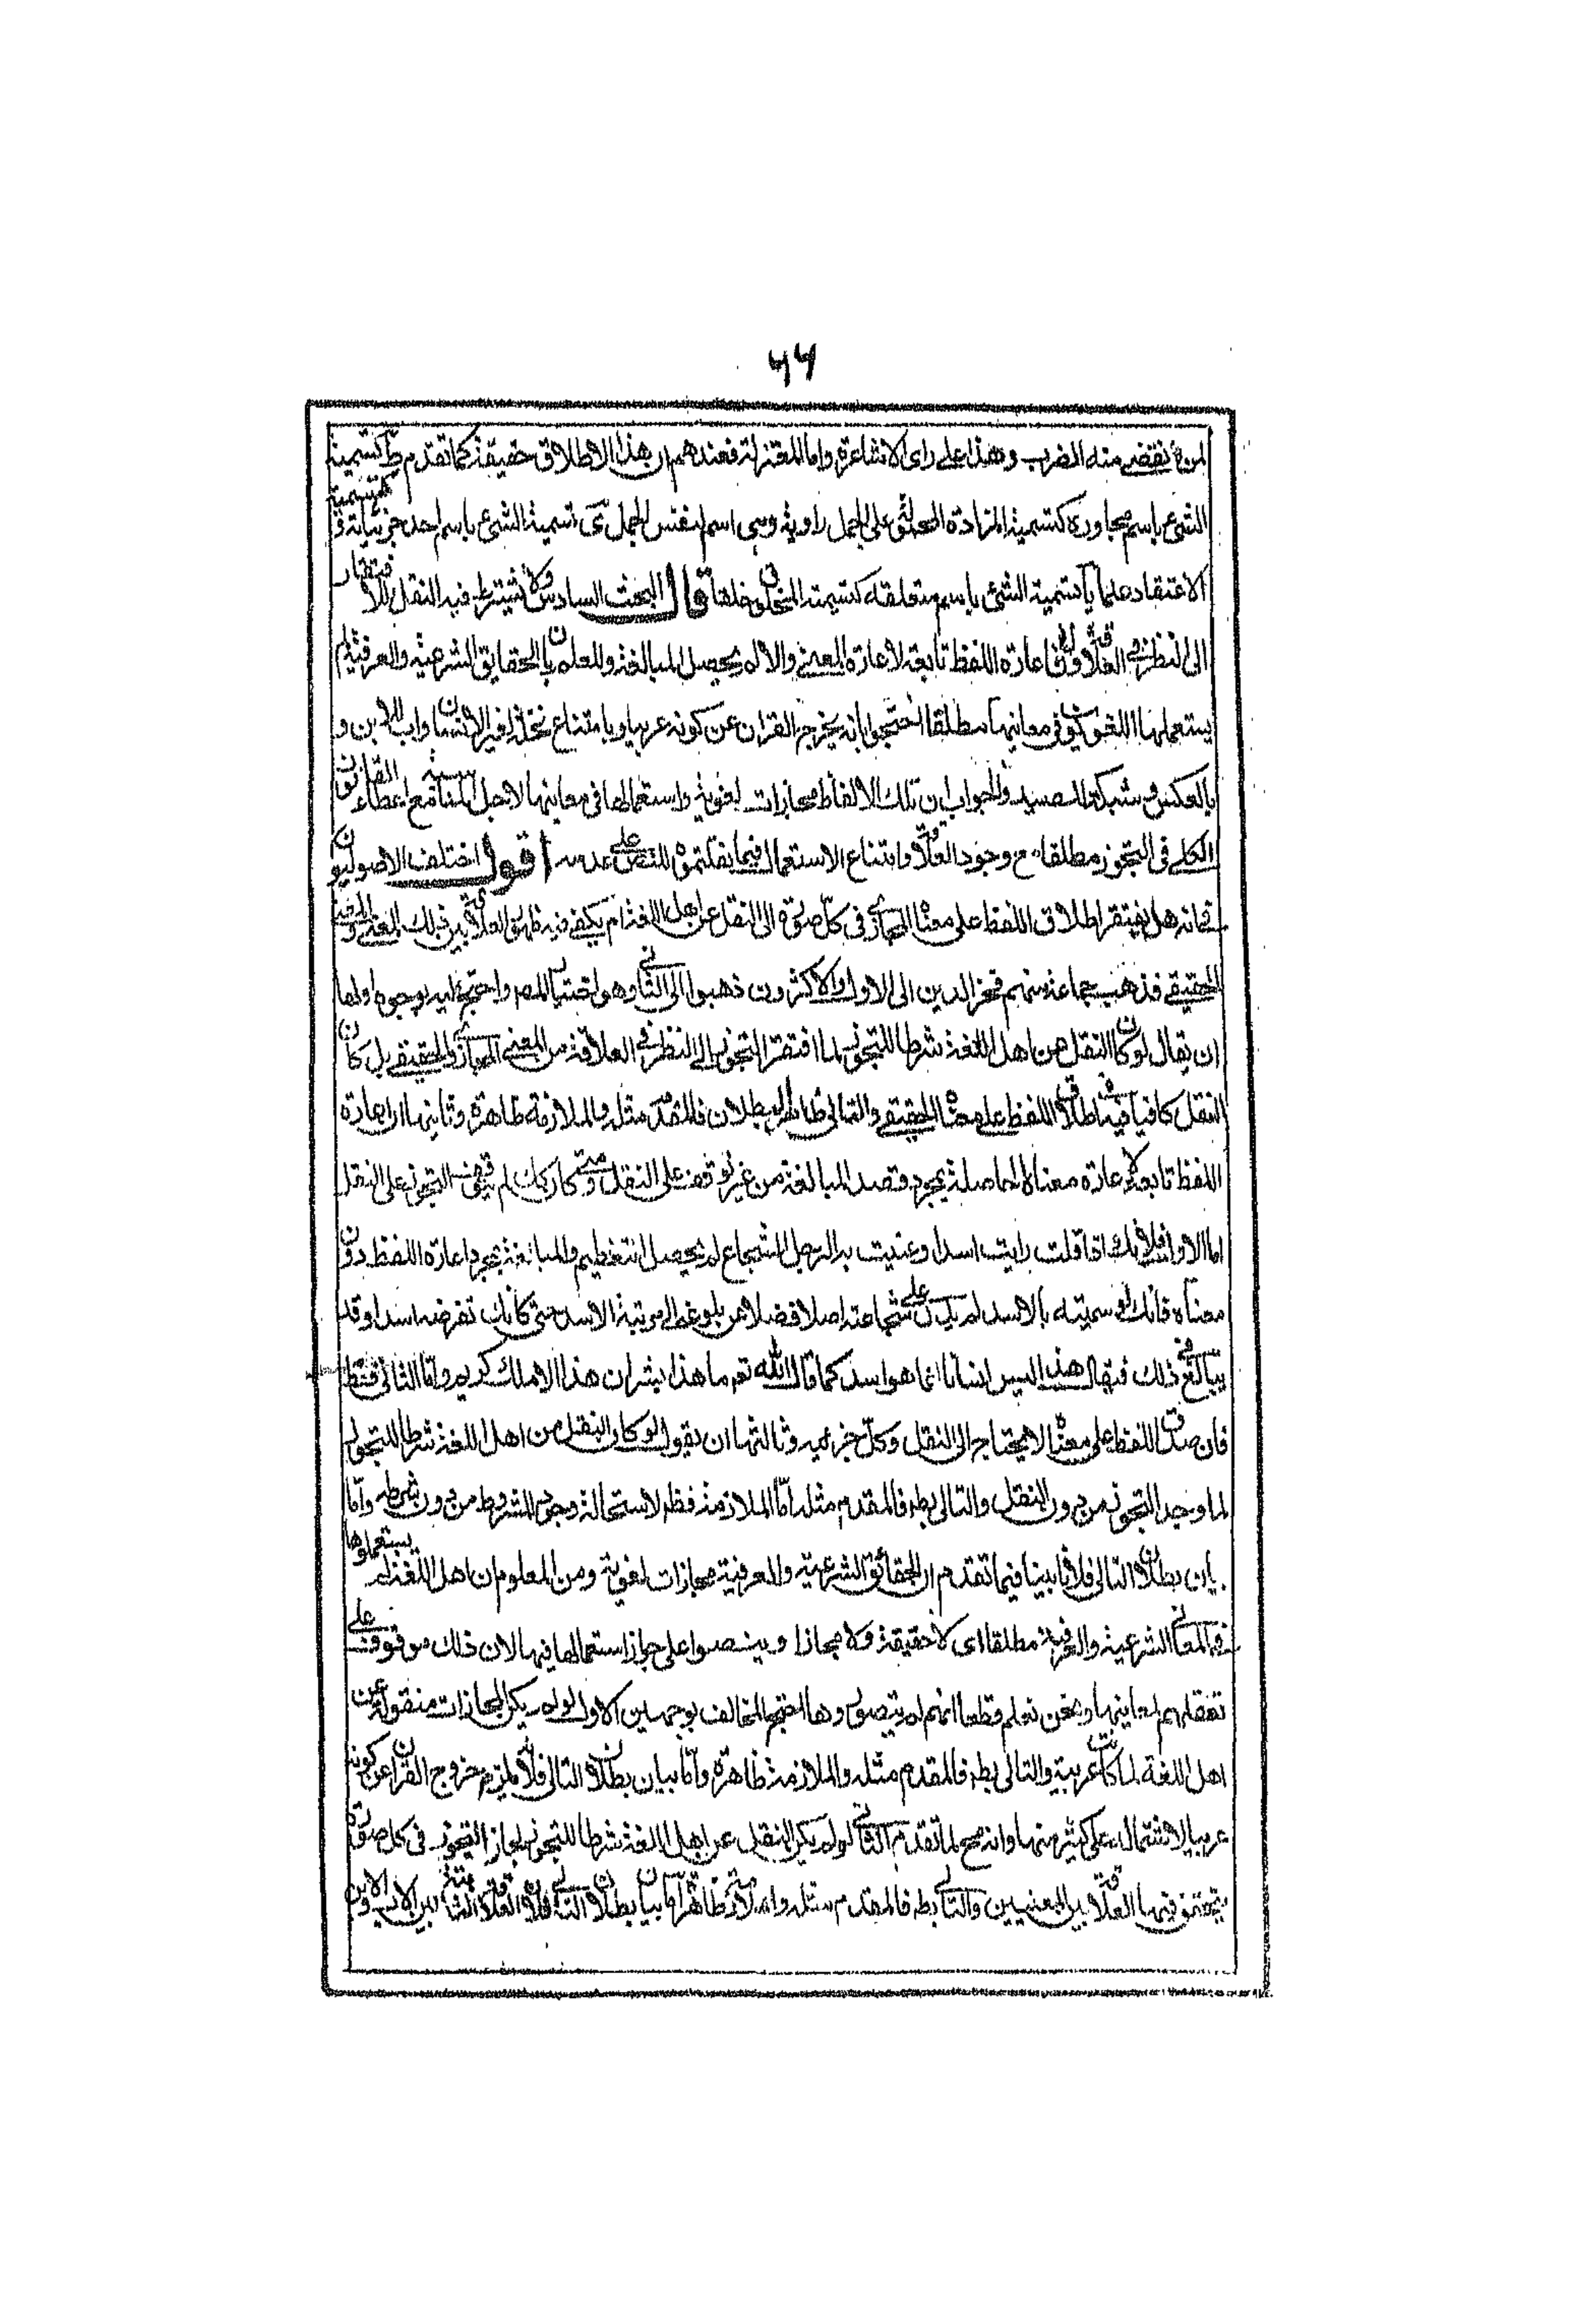 ٦٦
لمن انقضى منه الضرب وهذا على راى الاشاعرة واما المعتزلة فعندهم ان هذا الاطلاق حقيقة كما تقدم كتسمية
الشئ باسم مجاوره كتسمية المزادة المحمولة على الجمل راوية وهى اسم لنفس الجمل تسمية الشئ باسم احد جزئياته كتسمية
الاعتقاد علما يا تسمية الشئ باسم متعلقه كتسمية المخلوق خلقا قال البحث السادس ولا يشترط فيه النقل للافتقار
الى النظر فى العلاقة ولان اعارة اللفظ تابعة لاعارة المعنى والا لم يحصل المبالغة وللعلم بان الحقايق الشرعية والعرفية لم
يستعملها اللغويون فى معانيها مطلقا احتجوا بانه يخرج القران عن كونه عربيا وبامتناع نخلة لغير الانسان واب للابن و
بالعكس وشبكة للصيد والجواب ان تلك الالفاظ مجازات لغوية واستعمالها فى معانيها لاجل المناسبة مع اعطاء القانون
الكلى فى التجوز مطلقا مع وجود العلاقة وامتناع الاستعمال فيما نقلتموه للنص على عدمه اقول اختلف الاصوليون
فى انه هل يفتقر اطلاق اللفظ على معناه المجازى فى كل صورة الى النقل عن اهل اللغة ام يكفى فيه ظهور العلاقة بين ذلك المعنى والمعنى
الحقيقى فذهب جماعة منهم فخر الدين الى الاول والاكثرون ذهبوا الى الثانى وهو اختيار المصر واحتج عليه بوجوه اولها
ان يقال لو كان النقل عن اهل اللغة شرطا للتجوز لما افتقر التجوز الى النظر فى العلاقة من المعنى المجازى والحقيقى بل كان
النقل كافيا فيه اطلاق اللفظ على معناه الحقيقى والتالى ظاهر البطلان فالمقدم مثله والملازمة ظاهرة وثانيها ان اعارة
اللفظ تابعة لاعارة معناه الحاصلة بمجرد قصد المبالغة من غير توقف على النقل ومتى كان كذلك لم يتوقف التجوز على النقل
اما الاول فلانك اذا قلت رايت اسدا وعنيت به الرجل الشجاع لم يحصل التعظيم والمبالغة بمجرد اعارة اللفظ دون
معناه فانك لو سميته بالاسد لم يدل على شجاعته اصلا فضلا عن بلوغه الى مرتبة الاسد حتى كانك تفرضه اسدا وقد
يبالغ فى ذلك فيقال هذا ليس انسانا انما هو اسد كما قال الله تعم ما هذا بشرا ان هذا الا ملك كريم واما الثانى فظ
فان صدق اللفظ على معناه لا يحتاج الى النقل وثالثها ان يقول لو كان النقل من اهل اللغة شرطا للتجوز
لما وجد التجوز من دون النقل والتالى بط فالمقدم مثله اما الملازمة فظ لاستحالة وجود المشروط من دون شرطه واما
بيان بطلان التالى فلانا بينا فيما تقدم ان الحقائق الشرعية والعرفية مجازات لغوية ومن المعلوم ان اهل اللغة لم يستعملوها
فى المعانى الشرعية والعرفية مطلقا اى لا حقيقة ولا مجازا وينصوا على جواز استعمالها فيها لان ذلك موقوف على
تعقلهم لمعانيها ونحن نعلم قطعا انهم لم يتصوروها احتج المخالف بوجهين الاول لو لم يكن المجازات منقولة عن
اهل اللغة لما كانت عربية والتالى بط فالمقدم مثله والملازمة ظاهرة واما بيان بطلان التالى فلانه يلزم خروج القران عن كونه
عربيا لاشتماله على كثير منها وانه صح لما تقدم الثانى لو لم يكن النقل عن اهل اللغة شرطا للتجوز لجاز التجوز فى كل صورة
يتحقق فيها العلاقة بين المعنيين والتالى بط فالمقدم مثله والملازمة ظاهرة اما بيان بطلان التالى فلان العلاقة ثابتة بين الاب والابن